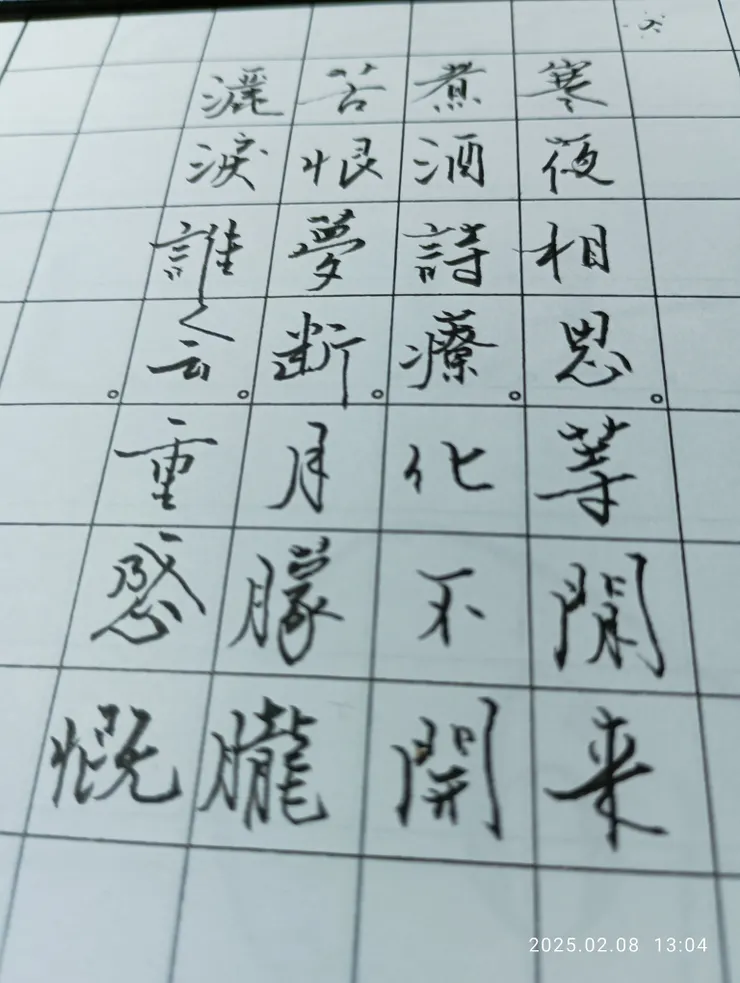 寒夜相思。等閒来
煮酒詩療。化不開
苦恨夢断。月朦朧
灑淚誰会。重感慨
。
2025.02.08 13:04